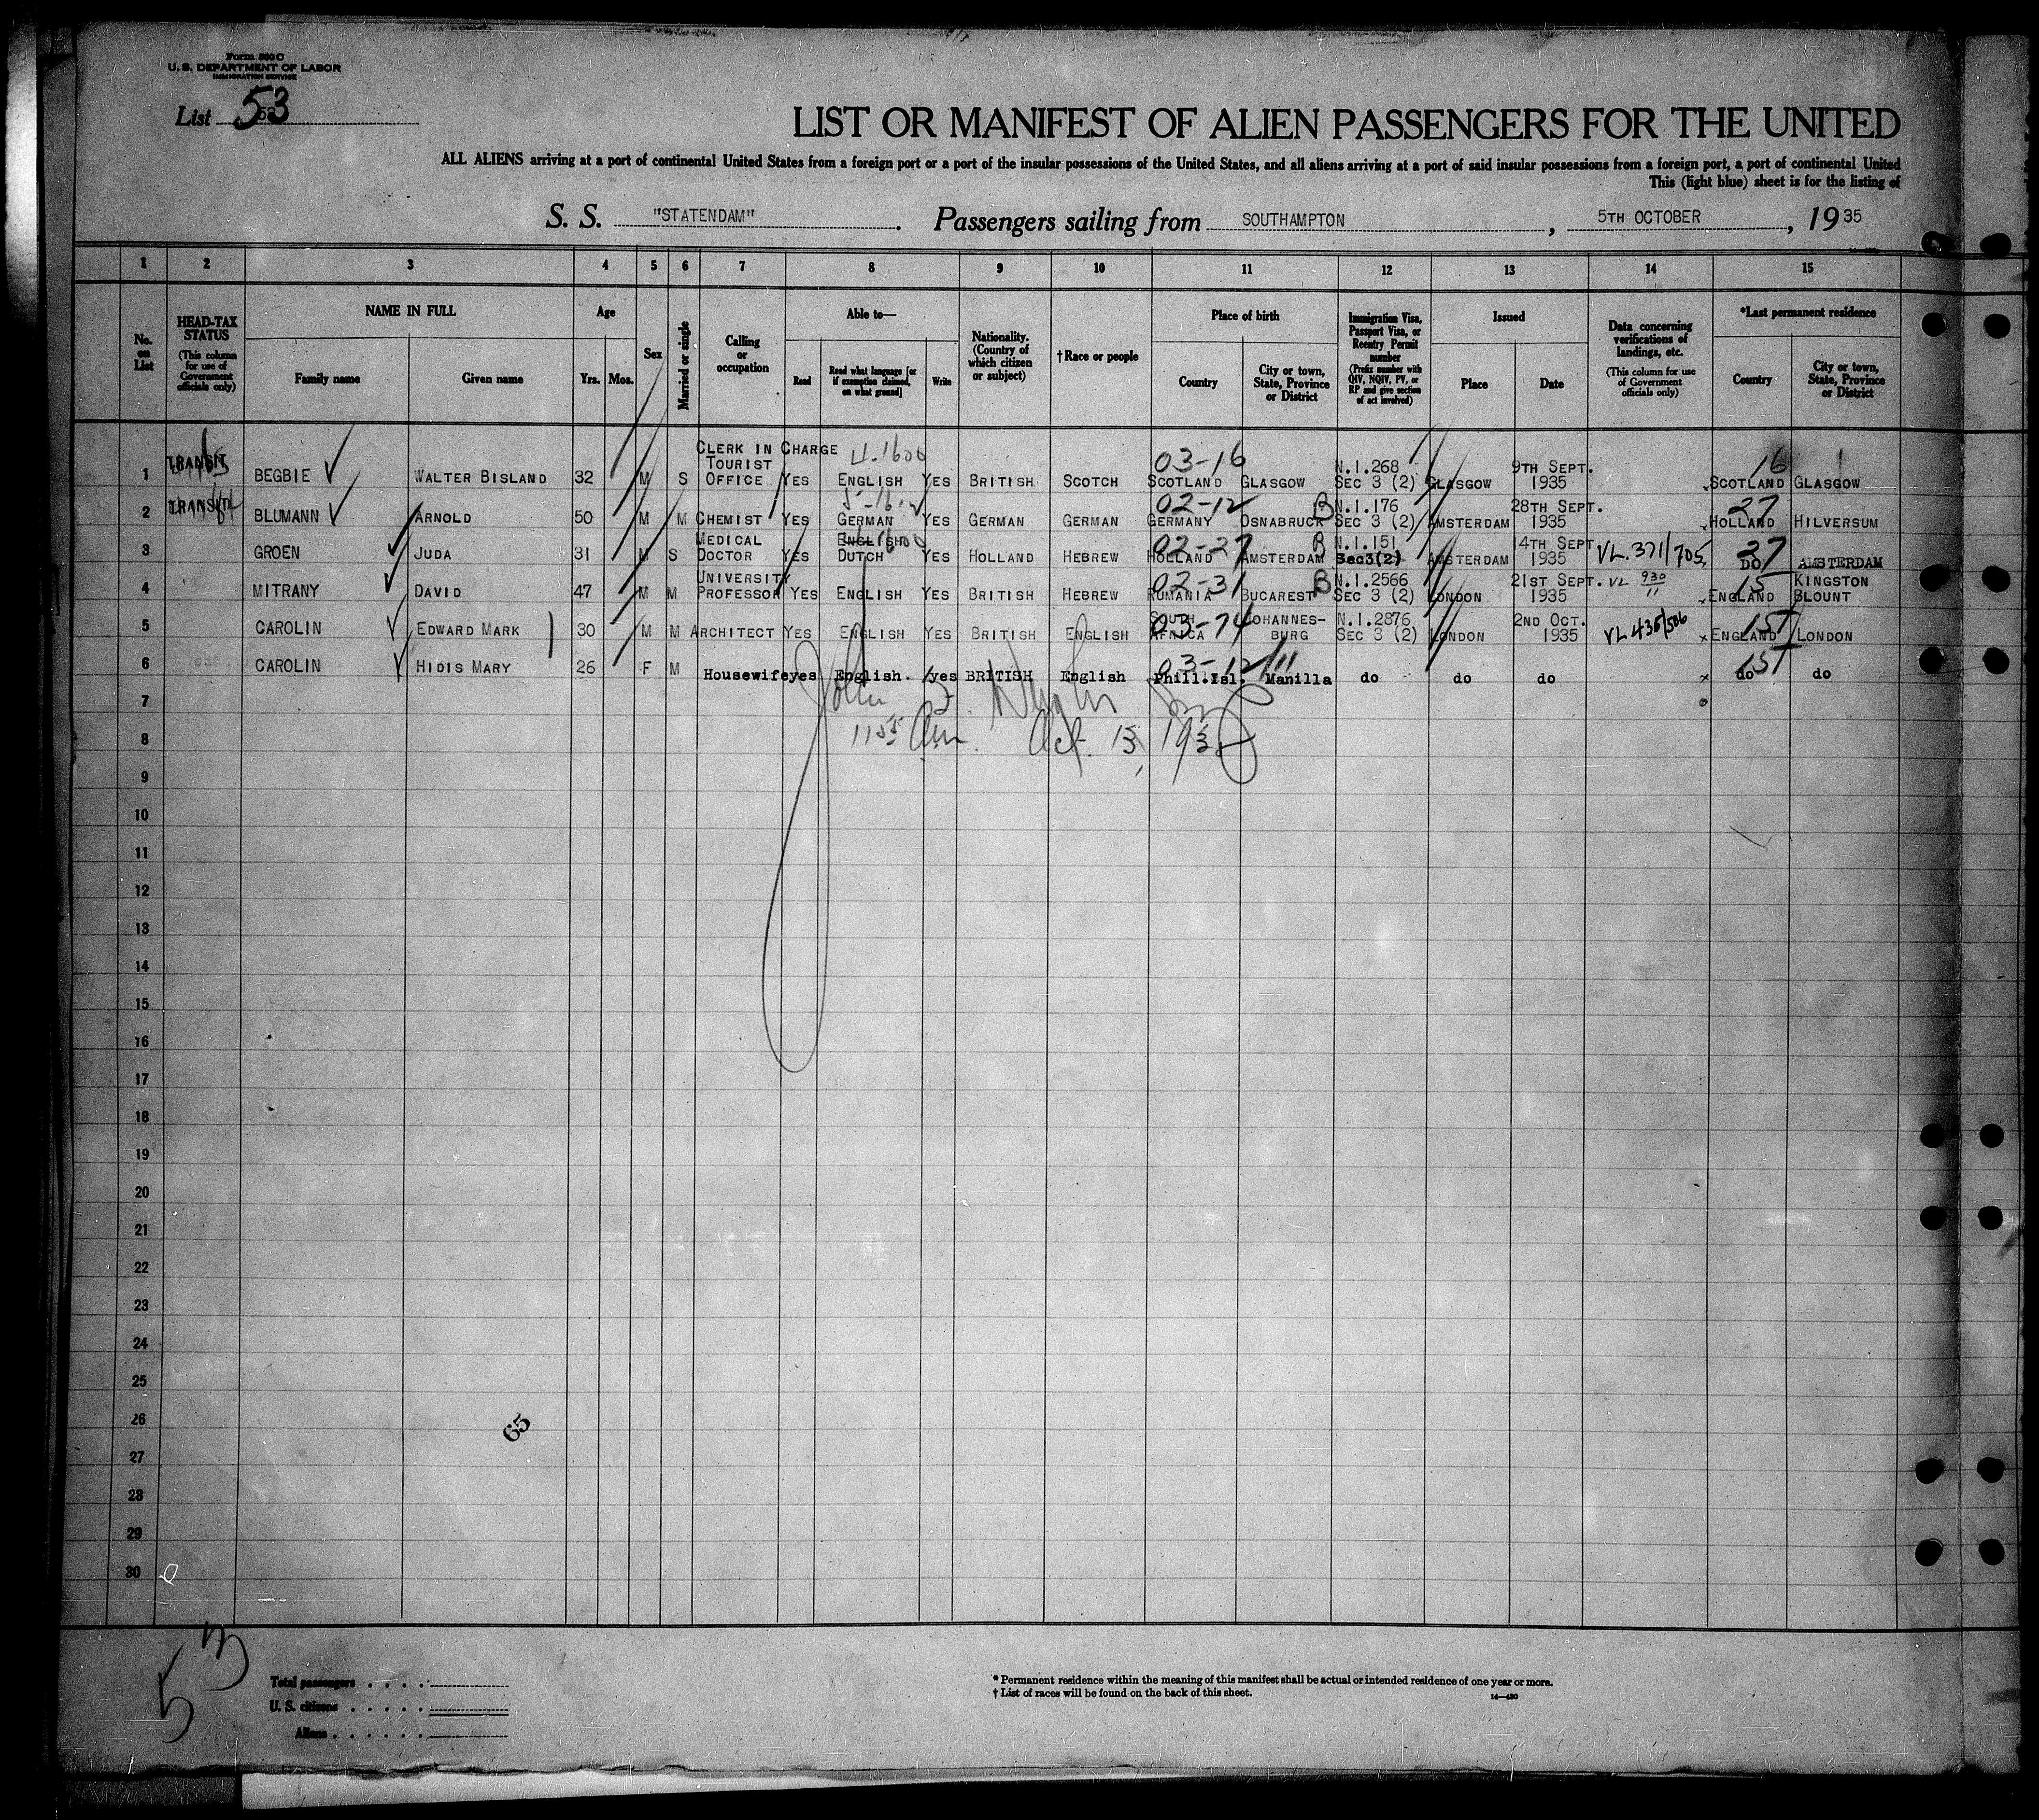 Form 500 C
U. S. DEPARTMENT OF LABOR
IMMIGRATION SERVICE
List 53
LIST OR MANIFEST OF ALIEN PASSENGERS FOR THE UNITED
ALL ALIENS arriving at a port of continental United States from a foreign port or a port of the insular possessions of the United States, and all aliens arriving at a port of said insular possessions from a foreign port, a port of continental United
This (light blue) sheet is for the listing of
S. S. "STATENDAM". Passengers sailing from SOUTHAMPTON, 5TH OCTOBER, 19 35
1 2 3 4 5 6 7 8 9 10 11 12 13 14 15
No. on List
HEAD-TAX STATUS (This column for use of Government officials only)
NAME IN FULL Family name Given name
Age Yrs. Mos.
Sex
Married or single
Calling or occupation
Able to— Read Read what language [or if exemption claimed, on what ground] Write
Nationality. (Country of which citizen or subject)
†Race or people
Place of birth Country City or town, State, Province or District
Immigration Visa, Passport Visa, or Reentry Permit number (Prefix number with QIV, NQIV, PV, or RP and give section of act involved)
Issued Place Date
Data concerning verifications of landings, etc. (This column for use of Government officials only)
*Last permanent residence Country City or town, State, Province or District
4-1600 03-16 16
1 TRANSIT BEGBIE WALTER BISLAND 32 M S CLERK IN CHARGE TOURIST OFFICE YES ENGLISH YES BRITISH SCOTCH SCOTLAND GLASGOW N.I.268 SEC 3 (2) GLASGOW 9TH SEPT. 1935 SCOTLAND GLASGOW
02-12 27
2 TRANSIT BLUMANN ARNOLD 50 M M CHEMIST YES GERMAN YES GERMAN GERMAN GERMANY OSNABRUCK B N.I.176 SEC 3 (2) AMSTERDAM 28TH SEPT. 1935 HOLLAND HILVERSUM
02-27 27
3 GROEN JUDA 31 M S MEDICAL DOCTOR YES ENGLISH DUTCH YES HOLLAND HEBREW HOLLAND AMSTERDAM B N.I.151 Sec3(2) AMSTERDAM 14TH SEPT. 1935 VL.371/705 DO AMSTERDAM
02-31 15
4 MITRANY DAVID 47 M M UNIVERSITY PROFESSOR YES ENGLISH YES BRITISH HEBREW RUMANIA BUCAREST B N.I.2566 SEC 3 (2) LONDON 21ST SEPT. 1935 VL 930/11 ENGLAND KINGSTON BLOUNT
03-74 15
5 CAROLIN EDWARD MARK 30 M M ARCHITECT YES ENGLISH YES BRITISH ENGLISH SOUTH AFRICA JOHANNES-BURG N.I.2876 SEC 3 (2) LONDON 2ND OCT. 1935 VL 435/506 ENGLAND LONDON
03-12 15
6 CAROLIN HIDIS MARY 26 F M Housewife yes English yes BRITISH English Phill.Isl. Manilla do do do do do
7
8 1155 Am. Oct. 13, 1935
9
10
11
12
13
14
15
16
17
18
19
20
21
22
23
24
25
26
65
27
28
29
30
53
Total passengers
U. S. citizens
Aliens
* Permanent residence within the meaning of this manifest shall be actual or intended residence of one year or more.
† List of races will be found on the back of this sheet.
14—430